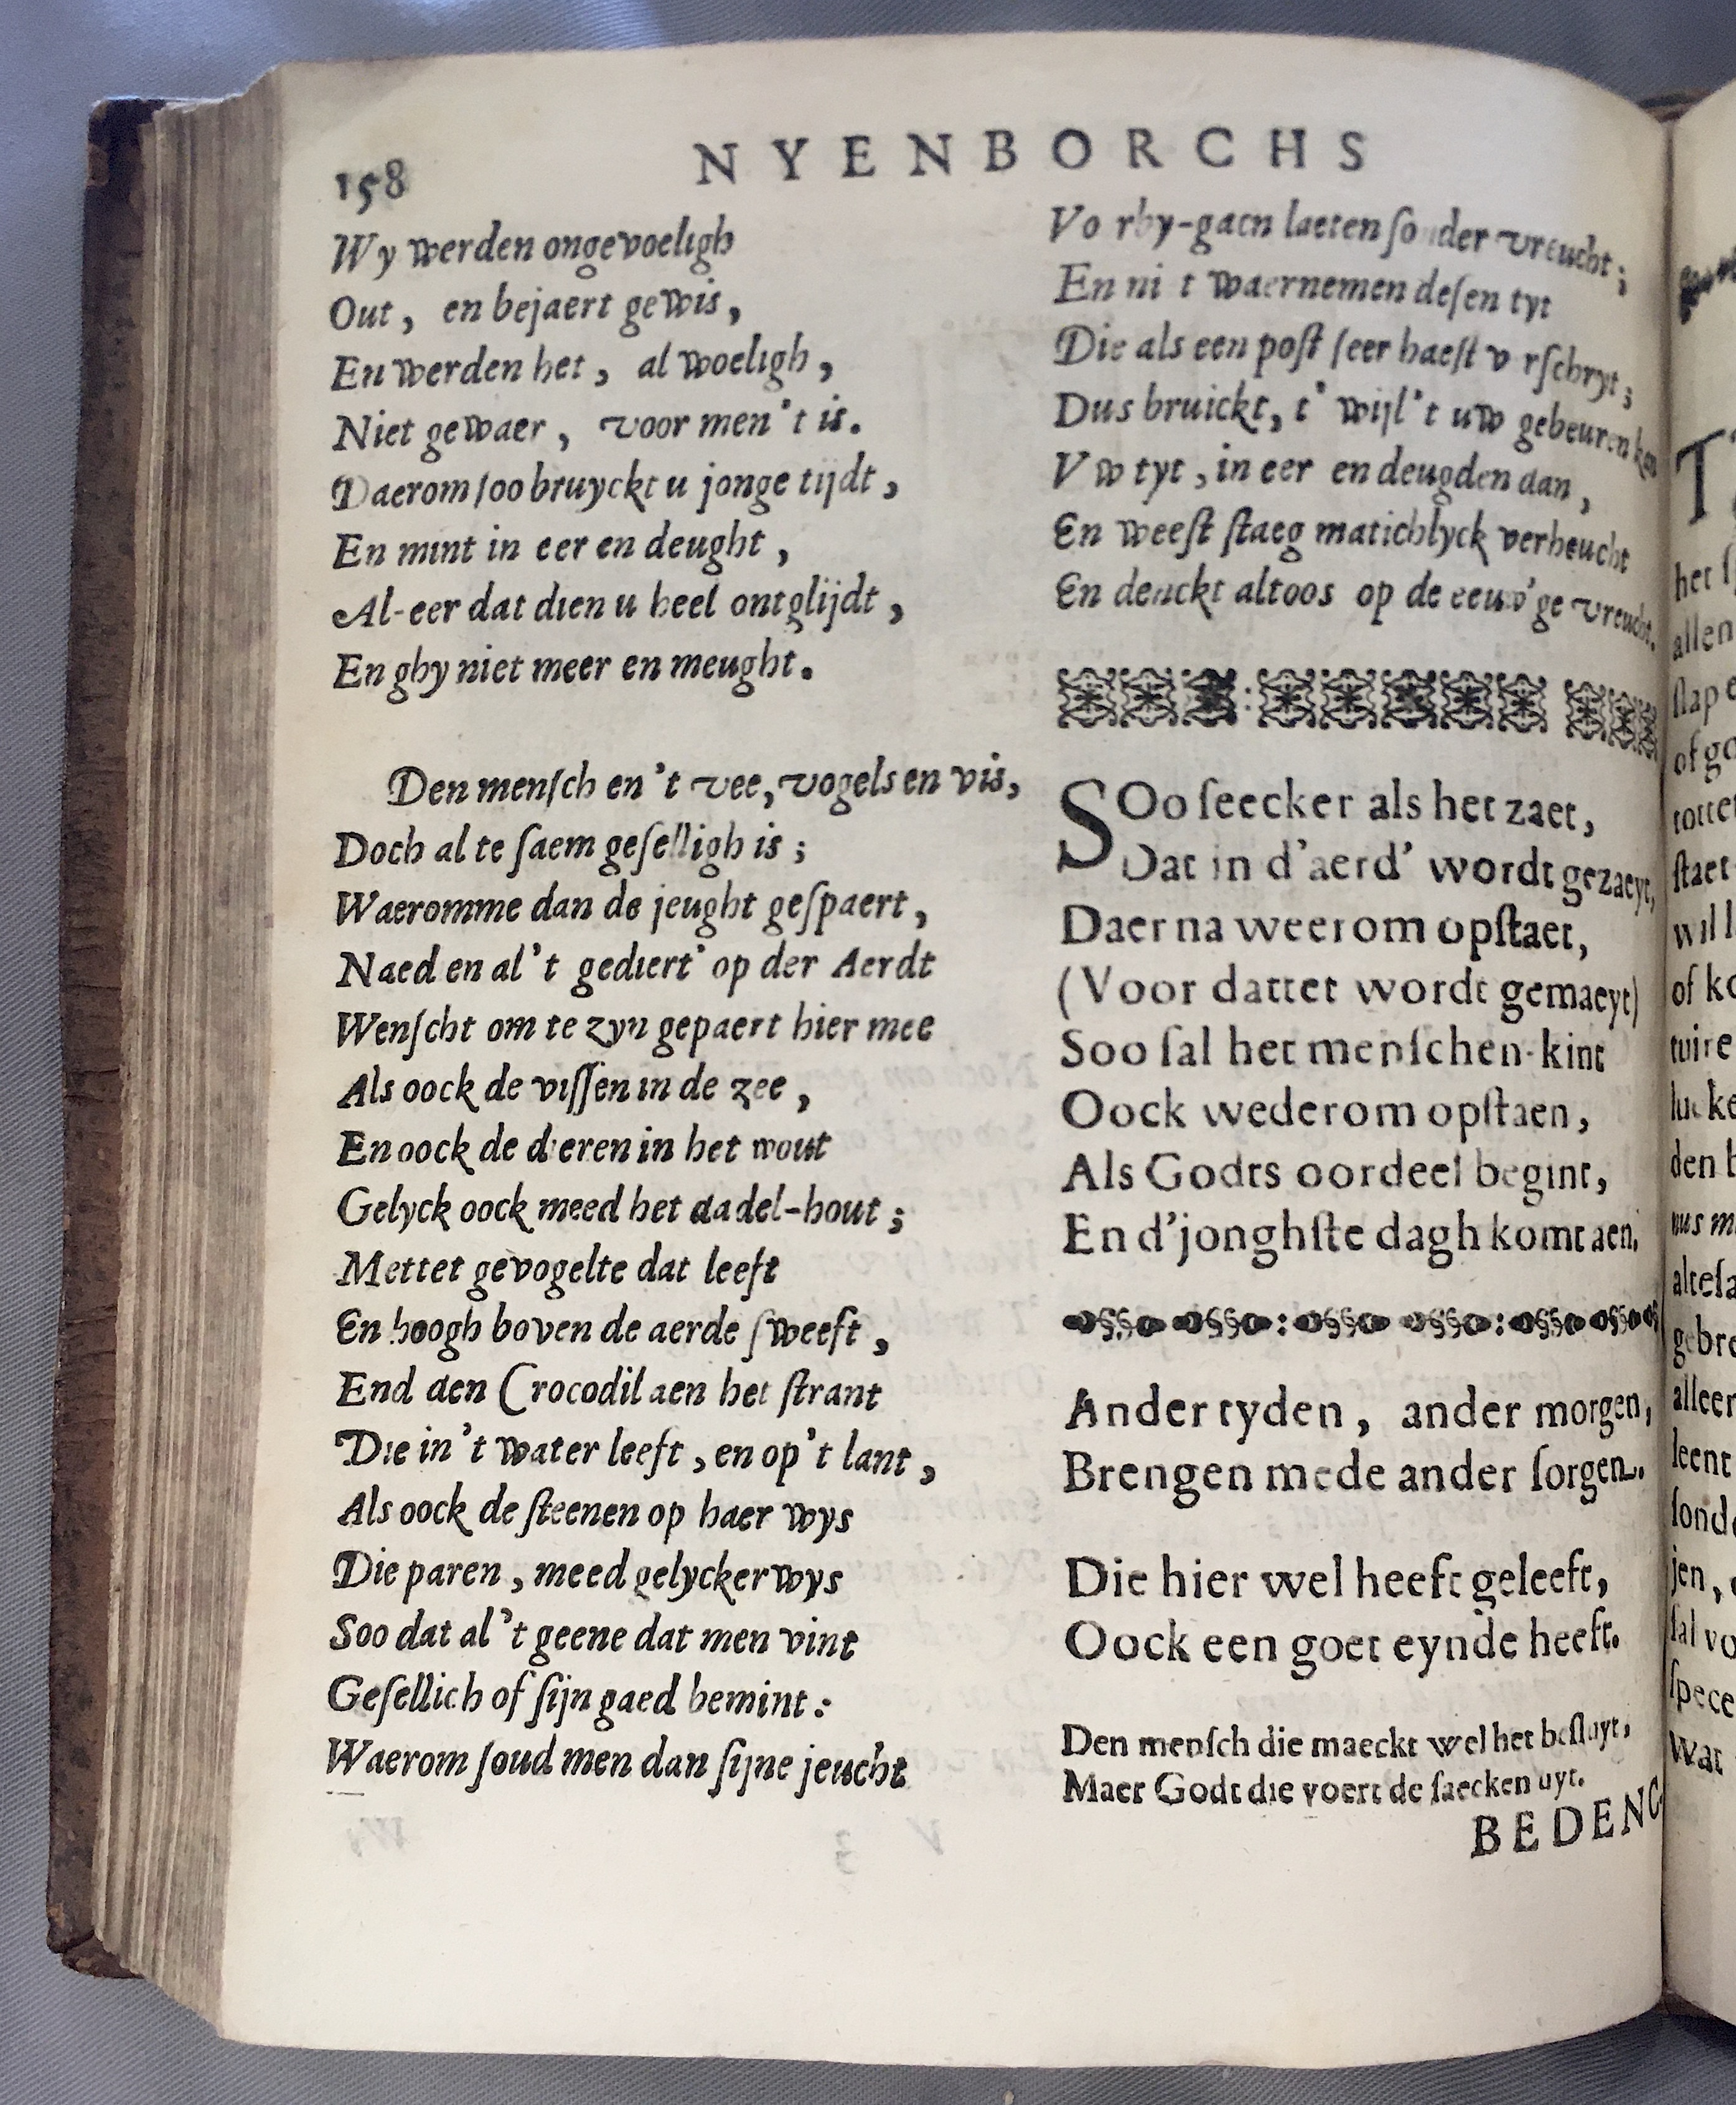 158
NYENBORCHS
Wy werden ongevoeligh
Out, en bejaert gewis,
En werden het, al woeligh,
Niet gewaer, voor men't is.
Daerom ſoo bruyckt u jonge tijdt,
En mint in eer en deught,
Al-eer dat dien u heel ontglijdt,
En ghy niet meer en meught.
Den menſch en't vee, vogels en vis,
Doch al te ſaem geſelligh is;
Waeromme dan de jeught geſpaert,
Naed en al't gediert' op der Aerdt
Wenſcht om te zyn gepaert hier mee
Als oock de viſſen in de zee,
En oock de dieren in het wout
Gelyck oock meed het dadel-hout;
Mettet gevogelte dat leeft
En hoogh boven de aerde ſweeft,
End den Crocodil aen het ſtrant
Die in't water leeft, en op't lant,
Als oock de ſteenen op haer wys
Die paren, meed gelyckerwys
Soo dat al't geene dat men vint
Geſellich of ſijn gaed bemint:
Waerom ſoud men dan ſijne jeucht
Vo rby-gaen laeten ſonder vreucht;
En ni t waernemen deſen tyt
Die als een poſt ſeer haeſt v rſchryt;
Dus bruickt, t'wijl't uw gebeuren kan
Vw tyt, in eer en deugden dan,
En weeſt ſtaeg matichlyck verheucht
En denckt altoos op de eeuw'ge vreucht.
SOo ſeecker als het zaet,
Dat in d'aerd' wordt gezaeyt,
Daer na weerom opſtaet,
(Voor dattet wordt gemaeyt)
Soo ſal het menſchen-kint
Oock wederom opſtaen,
Als Godts oordeel begint,
En d'jonghſte dagh komt aen.
Ander tyden, ander morgen,
Brengen mede ander ſorgen.
Die hier wel heeft geleeft,
Oock een goet eynde heeft.
Den menſch die maeckt wel het beſluyt,
Maer Godt die voert de ſaecken uyt.
BEDENC
het
allen
ſlap
of
ſtaet
wil
of
den
leent
jen,
ſal
Wat